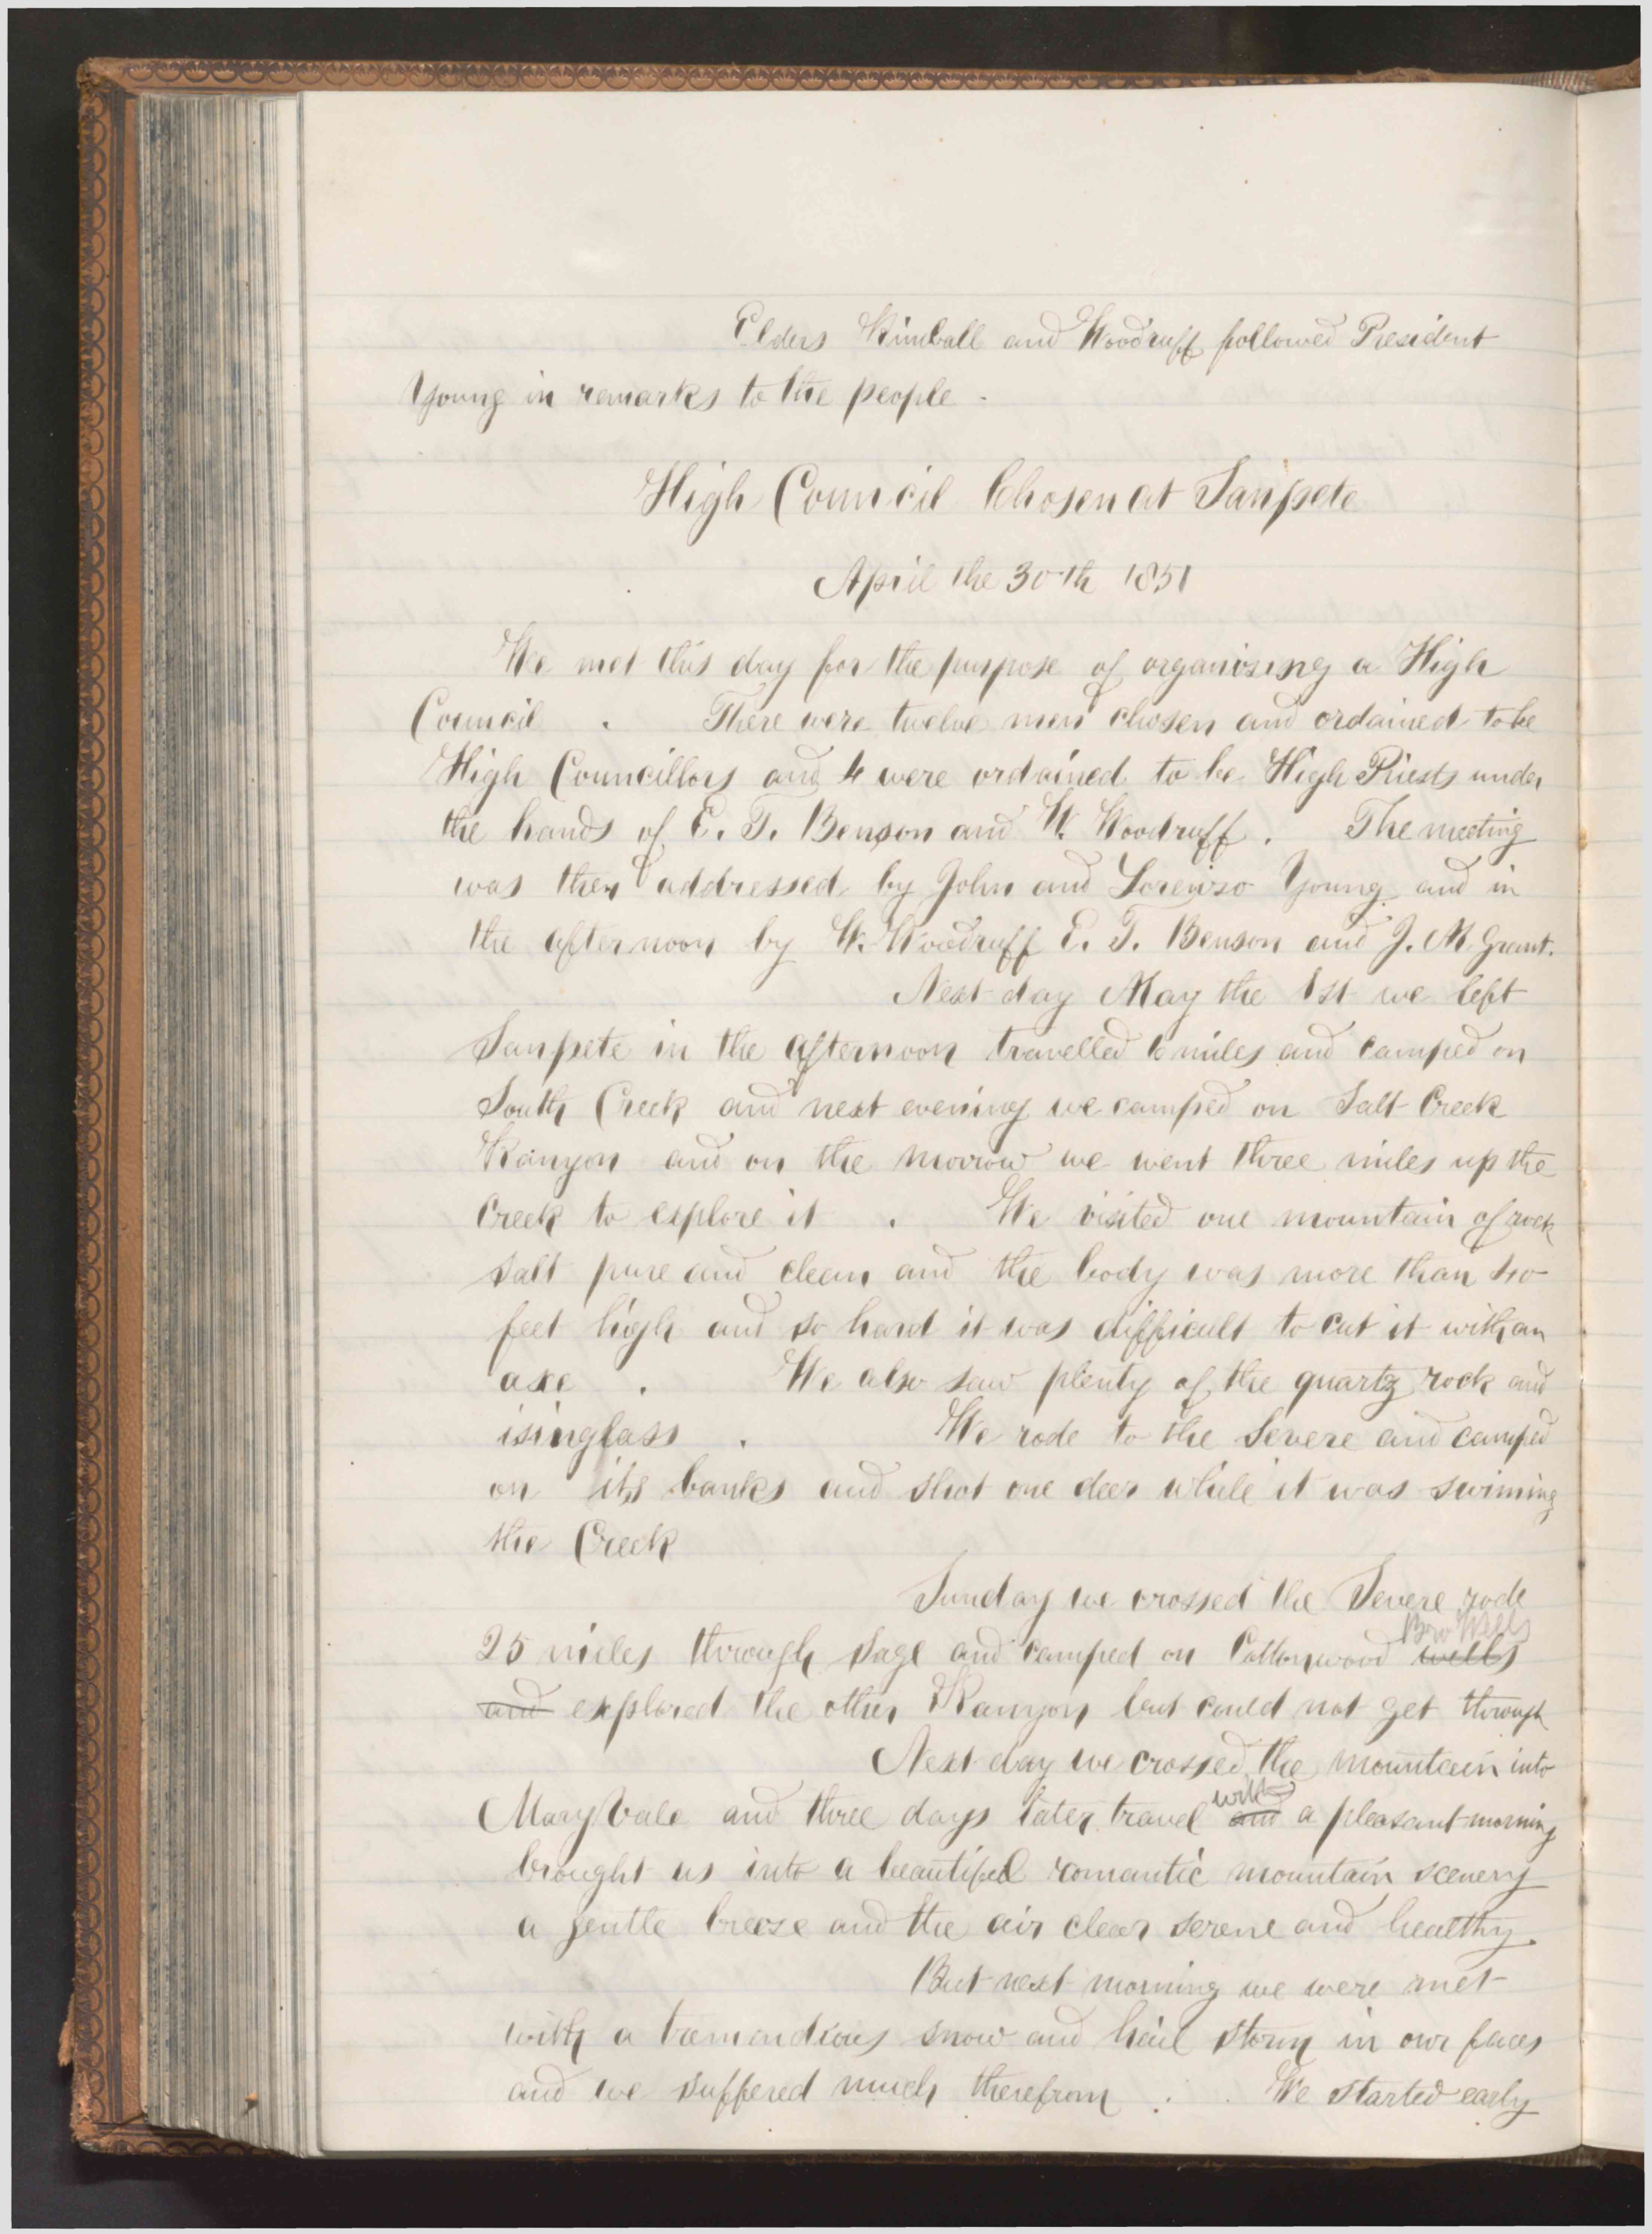 Elders Kimball and Woodruff followed President
Young in remarks to the people.
High Council Chosen at Sanpete
April the 30th 1851
We met this day for the purpose of organising a High
Council. There were twelve men chosen and ordained to be
High Councillors and 4 were ordained to be High Priests under
the hands of E. T. Benson and W. Woodruff. The meeting
was then addressed by John and Lorenzo Young and in
the afternoon by W. Woodruff E. T. Benson and J. M Grant.
Next day May the 1st we left
Sanpete in the afternoon travelled 6 miles and camped on
South Creek and next evening we camped on Salt Creek
Kanyon and on the morrow we went three miles up the
Creek to explore it. We visited one mountain of rock
salt pure and clean and the body was more than 40
feet high and so hard it was difficult to cut it with an
axe. We also saw plenty of the quartz rock and
isinglass. We rode to the Severe and camped
on its banks and shot one deer while it was swiming
the Creek
Sunday we crossed the Severe rode
Bro Wells
25 miles through sage and camped on Cottonwood wells
and explored the other Kanyon but could not get through
Next day we crossed the mountain into
with
Mary Vale and three days later travel and a pleasant morning
brought us into a beautiful romantic mountain scenery
a gentle breeze and the air clear serene and healthy.
But next morning we were met
with a tremendious snow and hail storm in our faces
and we suffered much therefrom. We started early